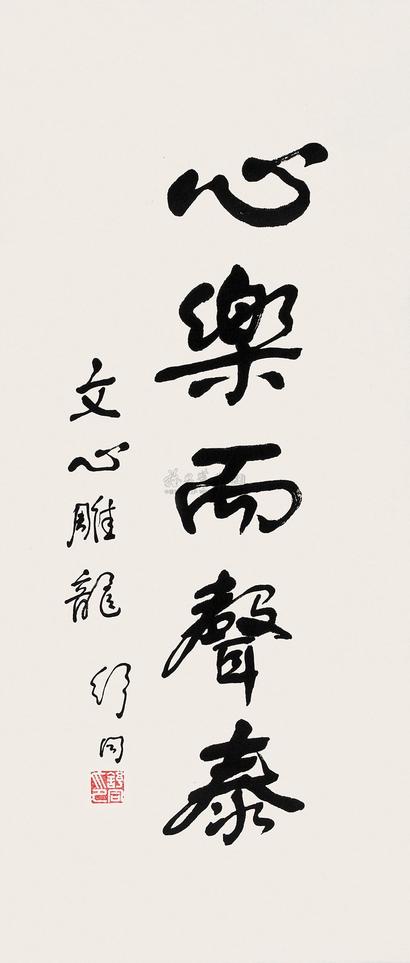 心樂而聲泰
文心雕龍 舒同